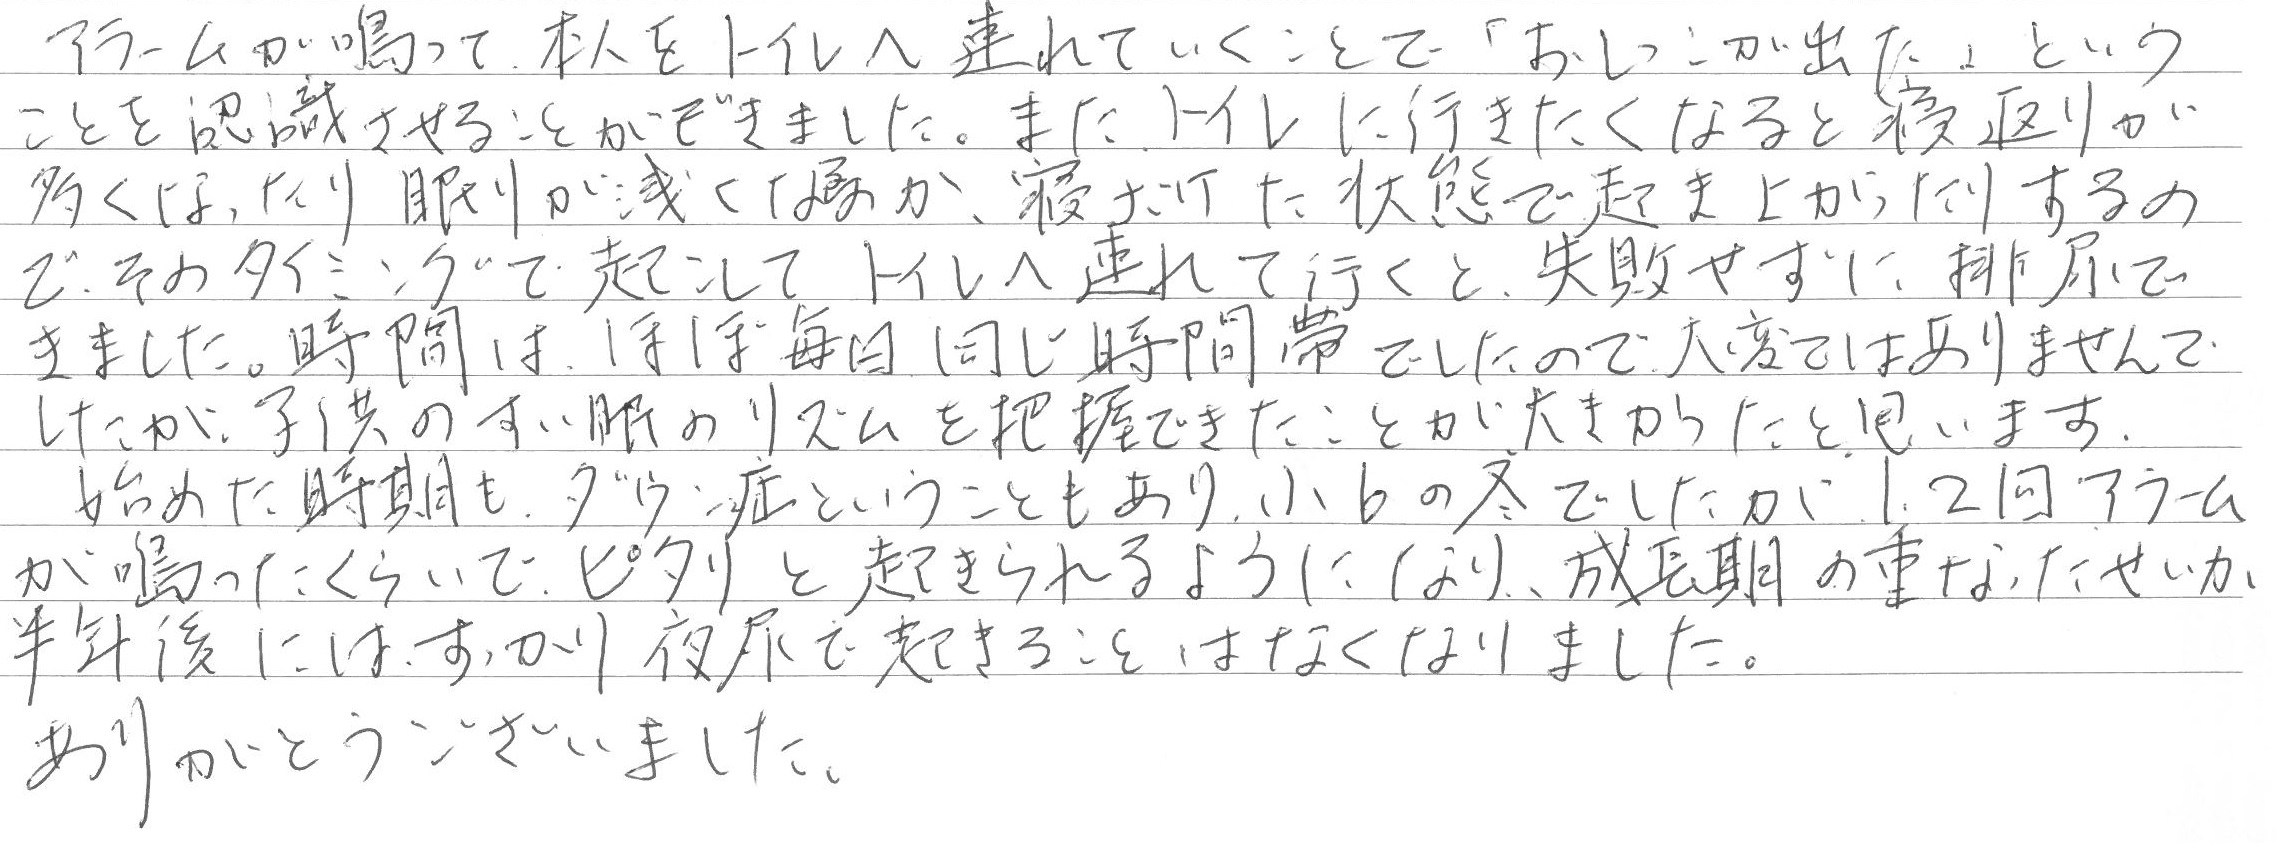 アラームが鳴って、本人をトイレへ連れていくことで「おしっこが出た」という
ことを認識させることができました。また、トイレに行きたくなると寝返りが
多くなったり眠りが浅くなるのか、寝ぼけた状態で起き上がったりするの
で、そのタイミングで起こしてトイレへ連れて行くと、失敗せずに排尿で
きました。時間は、ほぼ毎日同じ時間帯でしたので、大変ではありませんで
したが、子供のすい眠のリズムを把握できたことが大きかったと思います。
始めた時期も、ダウン症ということもあり、小6の冬でしたが、1、2回アラーム
が鳴ったくらいで、ピタリと起きられるようになり、成長期の重なったせいか、
半年後には、すっかり夜尿で起きることはなくなりました。
ありがとうございました。